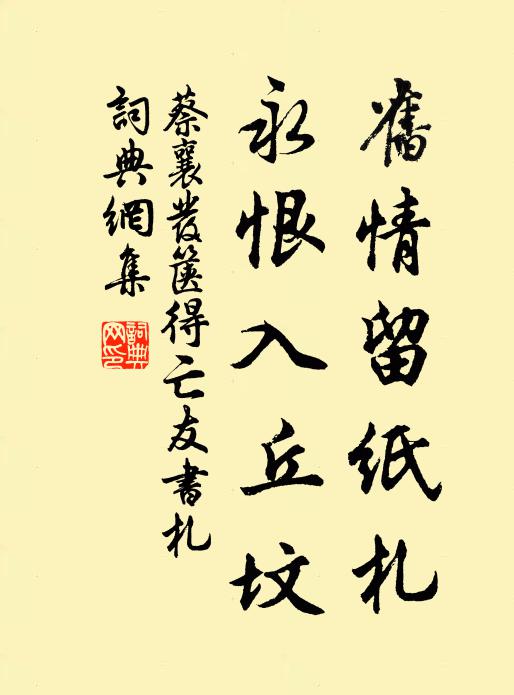 舊情留紙札
永恨入丘坟
蔡襄發篋得亡友書札
詞典網集
詞典網印